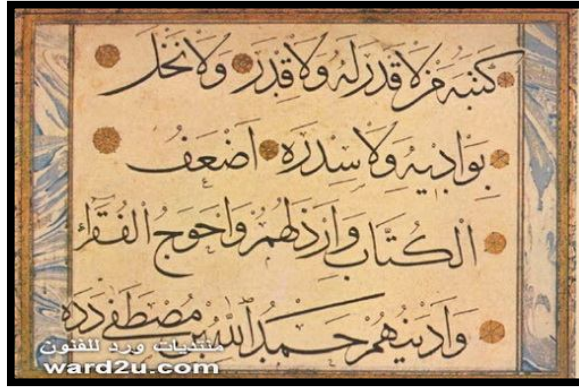 كتبه من لا قدر له ولا قدر ولا نخل
بواديه ولا سدره اضعف
الكتاب وارذلهم واحوج الفقراء
وادينهم حمد الله بن مصطفى دده
منتديات ورد للفنون
ward2u.com